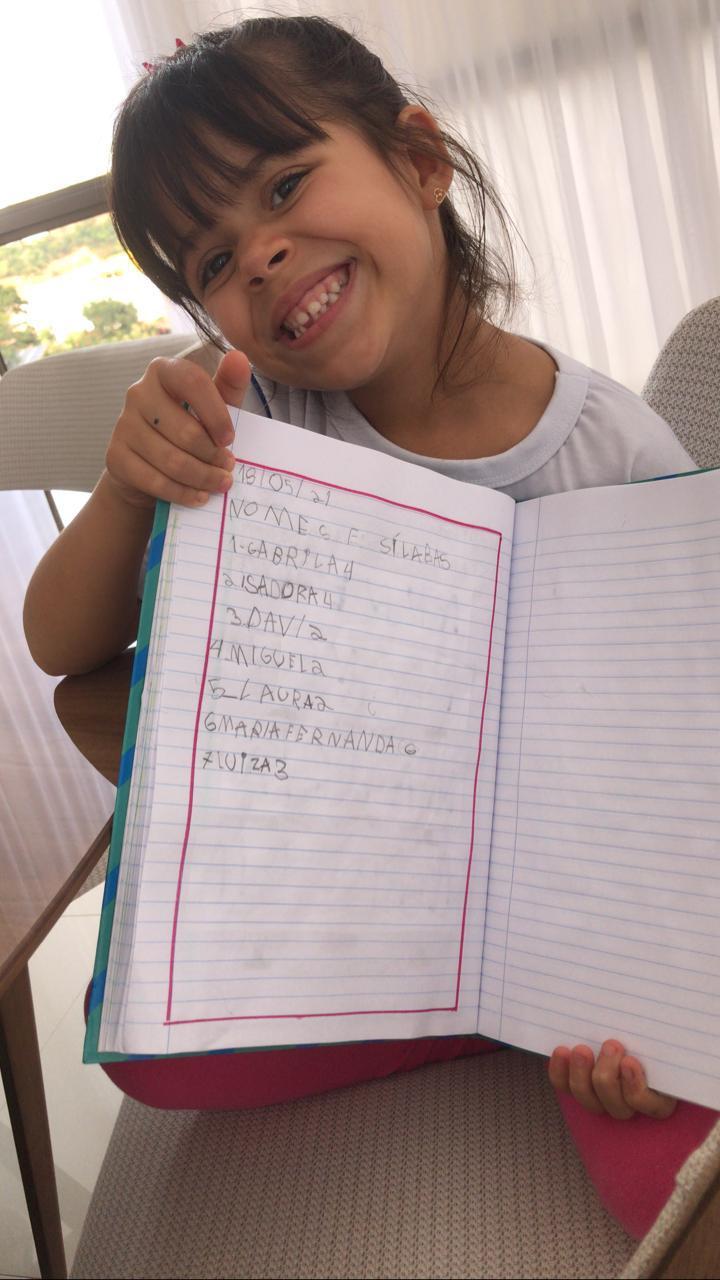 18/05/21
NOMES E SÍLABAS
1-GABRILA4
2.ISADORA4
3.DAVI2
4.MIGUEL2
5_LAURA2
6MARIAFERNANDA6
7LUIZA3